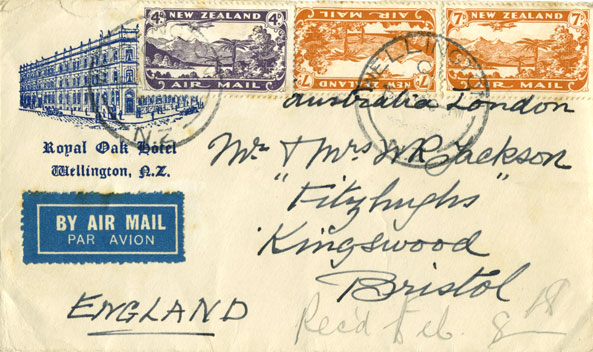 4d NEW ZEALAND 4d
AIR MAIL
NEW ZEALAND 7d
AIR MAIL
7d NEW ZEALAND 7d
AIR MAIL
WELLINGTON
N.Z
Australia London
Royal Oak Hotel
Wellington, N.Z.
Mr & Mrs W R Jackson
"Fitzhughs"
Kingswood
Bristol
BY AIR MAIL
PAR AVION
ENGLAND
Rec'd Feb. 8